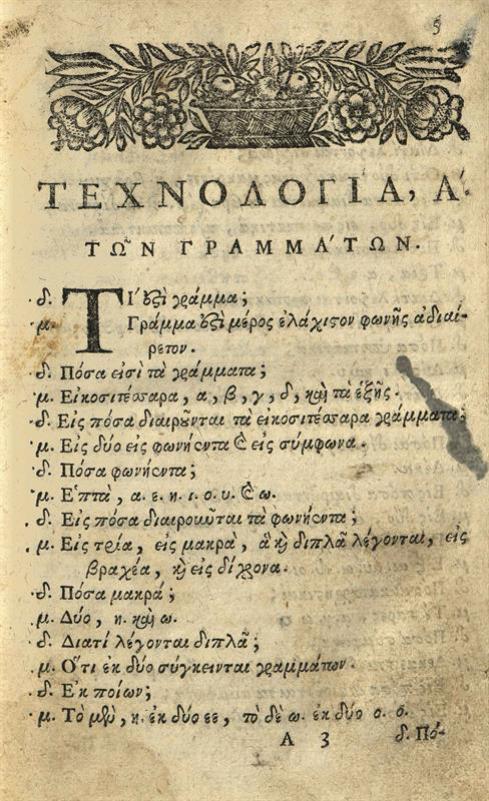 5
ΤΕΧΝΟΛΟΓΙΑ, Α΄.
ΤΩ῀Ν ΓΡΑΜΜΑ΄ΤΩΝ.
δ. ΤΙ΄ ἐστὶ γράμμα;
μ. Γράμμα ἐστὶ μέρος ἐλάχιστον φωνῆς ἀδιαί-
ρετον.
δ. Πόσα εἰσὶ τὰ γράμματα;
μ. Εἰκοσιτέσσαρα, α, β, γ, δ, καὶ τὰ ἑξῆς.
δ. Εἰς πόσα διαιροῦνται τὰ εἰκοσιτέσσαρα γράμματα;
μ. Εἰς δύο εἰς φωνήεντα & εἰς σύμφωνα.
δ. Πόσα φωνήεντα;
μ. Ἑπτὰ, α. ε. η. ι. ο. υ. & ω.
δ. Εἰς πόσα διαιροῦνται τὰ φωνήεντα;
μ. Εἰς τρία, εἰς μακρὰ, ἃ κὶ διπλᾶ λέγονται, εἰς
βραχέα, κὶ εἰς δίχρονα.
δ. Πόσα μακρά;
μ. Δύο, η. καὶ ω.
δ. Διατί λέγονται διπλᾶ;
μ. Ὅτι ἐκ δύο σύγκεινται γραμμάτων.
δ. Ἐκ ποίων;
μ. Τὸ μὲν, η. ἐκ δύο εε, τὸ δὲ ω. ἐκ δύο ο. ο.
Α 3 δ. Πό-